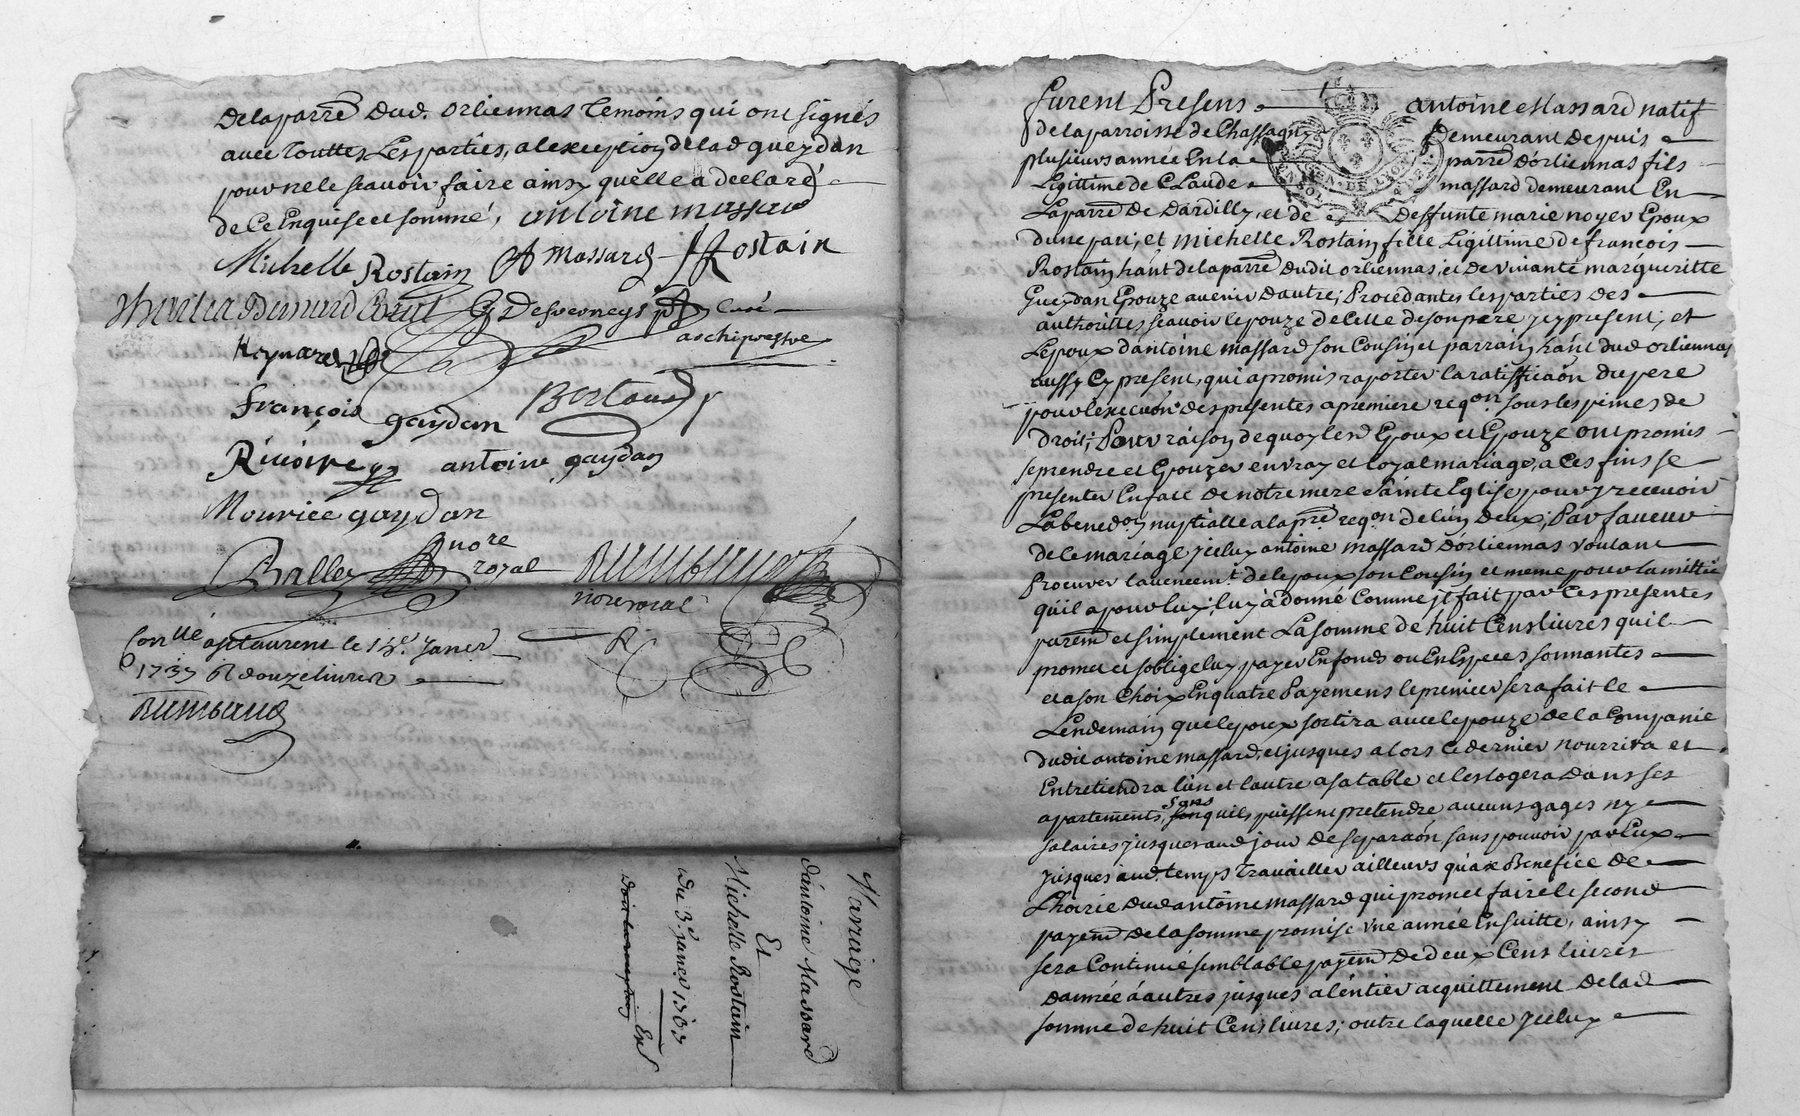 delaparre dud. orliennas temoins qui ont signés
avec touttes les parties, alexception delad gueydan
pour ne le scavoir faire ainsy quelle a declaré
de ce enquise et sommé, antoine massard
Michelle Rostain A Massard Rostain
Desverneys curé
archiprestre
Heynard
françois gaydan Bertaud
Rivoire antoine gaydan
Mourice gaydan
Balley nore royal
nore roial
Conllé a st Laurent le 13e Janer
1737 R douze livres
Rimbaud
Mariage
d'antoine Massard
Et
Michelle Rostain
du 3e. janer 1737
furent Presens antoine Massard natif
de la parroisse de Chassagny demeurant depuis
plusieurs année En la parre d'orliennas fils
Legittime de Claude massard demeurant En
Laparre de Dardilly, et de deffunte marie noyer Epoux
dune part; et Michelle Rostain fille Legittime de françois
Rostain hant delaparre dudit orliennas, et de vivante margueritte
Gueydan Epouze avenir dautre; Procedantes les parties des
authorittes scavoir lepouze de celle de son pere icy present; et
Lepoux dantoine massard son Cousin et parrain hant dud orliennas
aussy Cy present, qui a promis raporter la ratifficaôn du pere
pour lexecuôn des presentes a premiere reqon. sous les peines de
droit; Pour raison de quoy lesd Epoux et Epouze ont promis
se prendre et Epouzer en vray et loyal mariage, a Ces fins se
presenter En face de notre mere Sainte Eglise pour y recevoir
La benedon nuptialle a la pre reqon de lun deux; Par faveur
de le mariage Jceluy antoine massard d'orliennas voulant
Procurer lavencemt. de lepoux son Cousin et meme pour lamittié
quil a pour luy; luy a donné Comme jl fait par Ces presentes
parem et simplement La somme de huit Cens livres quil
promet et soblige luy payer En fonds ou En Especes sonnantes
et a son Choix En quatre Payemens le premier sera fait le
Lendemain que lepoux sortira avec lepouze de la Compagnie
dudit antoine massard, et jusques alors Ce dernier nourrira et
Entretiendra l'un et lautre a sa table et les logera dans ses
apartements, sans quils puissent pretendre aucuns gages ny
salaires jusques aud jour de separaôn sans pouvoir par Eux
jusques aud. temps travailler ailleurs qu'au Benefice de
L'hoirie dud antoine massard qui promet faire le second
payem de la somme promise une année En suitte, ainsy
sera Continué semblable payem de deux Cens livres
dannée à autres jusques a l'entier acquittement delad
somme de huit Cens livres; outre laquelle Jceluy